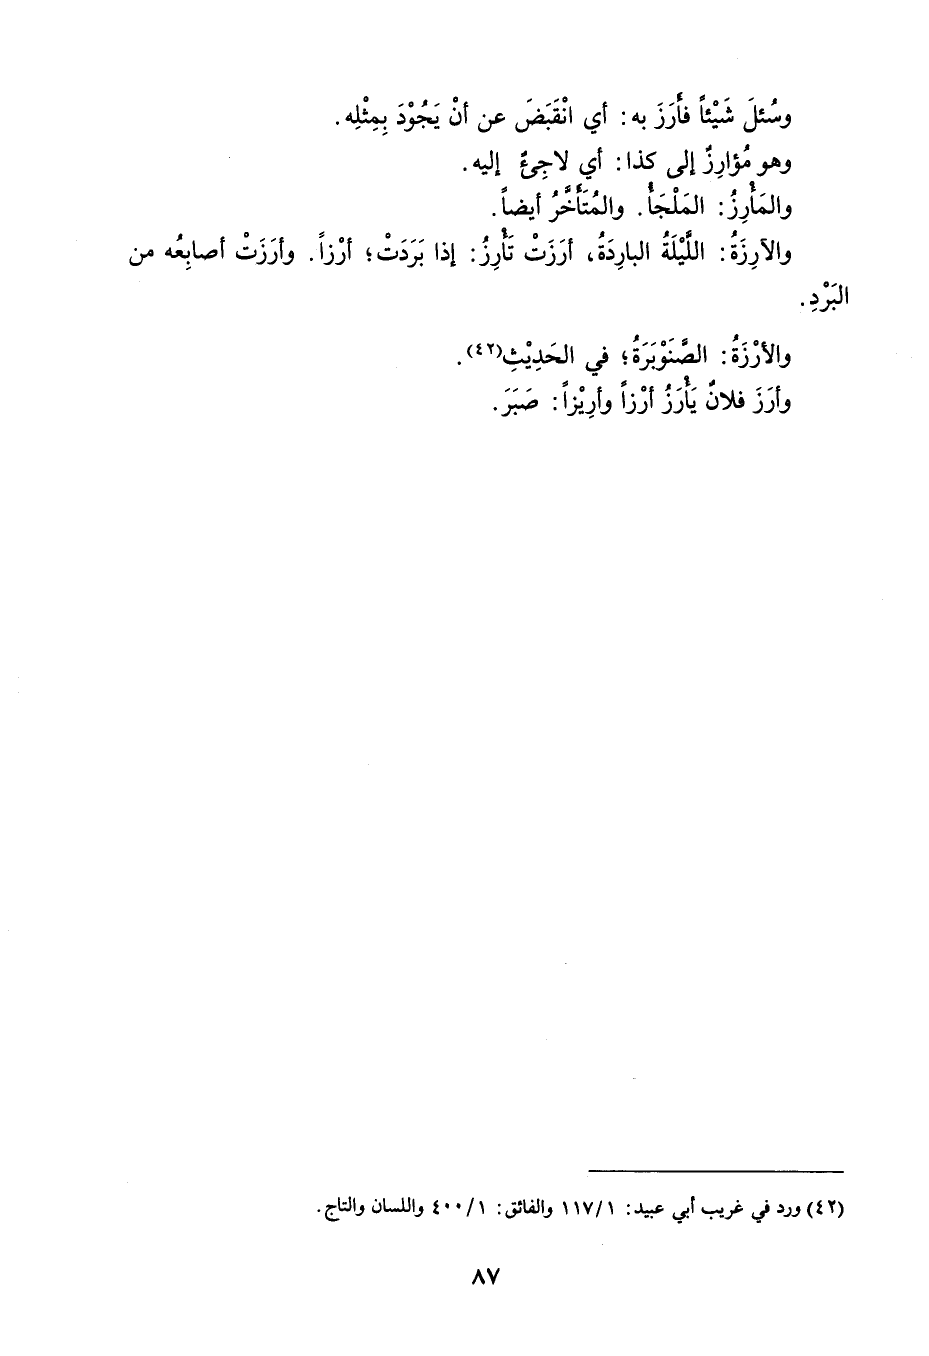 وسُئلَ شَيْئاً فأَرَزَ به: أي انْقَبَضَ عن أنْ يَجُوْدَ بِمِثْلِه.
وهو مُؤارِزٌ إلى كذا: أي لاجِئٌ إليه.
والمَأْرِزُ: المَلْجَأُ. والمُتَأَخَّرُ أيضاً.
والآرِزَةُ: اللَّيْلَةُ البارِدَةُ، أرَزَتْ تَأْرِزُ: إذا بَرَدَتْ؛ أرْزاً. وأرَزَتْ أصابِعُه من
البَرْدِ.
والأرْزَةُ: الصَّنَوْبَرَةُ؛ في الحَدِيْثِ(٤٢).
وأرَزَ فلانٌ يَأْرَزُ أرْزاً وأرِيْزاً: صَبَرَ.
(٤٢) ورد في غريب أبي عبيد: ١/١١٧ والفائق: ١/٤٠٠ واللسان والتاج.
٨٧